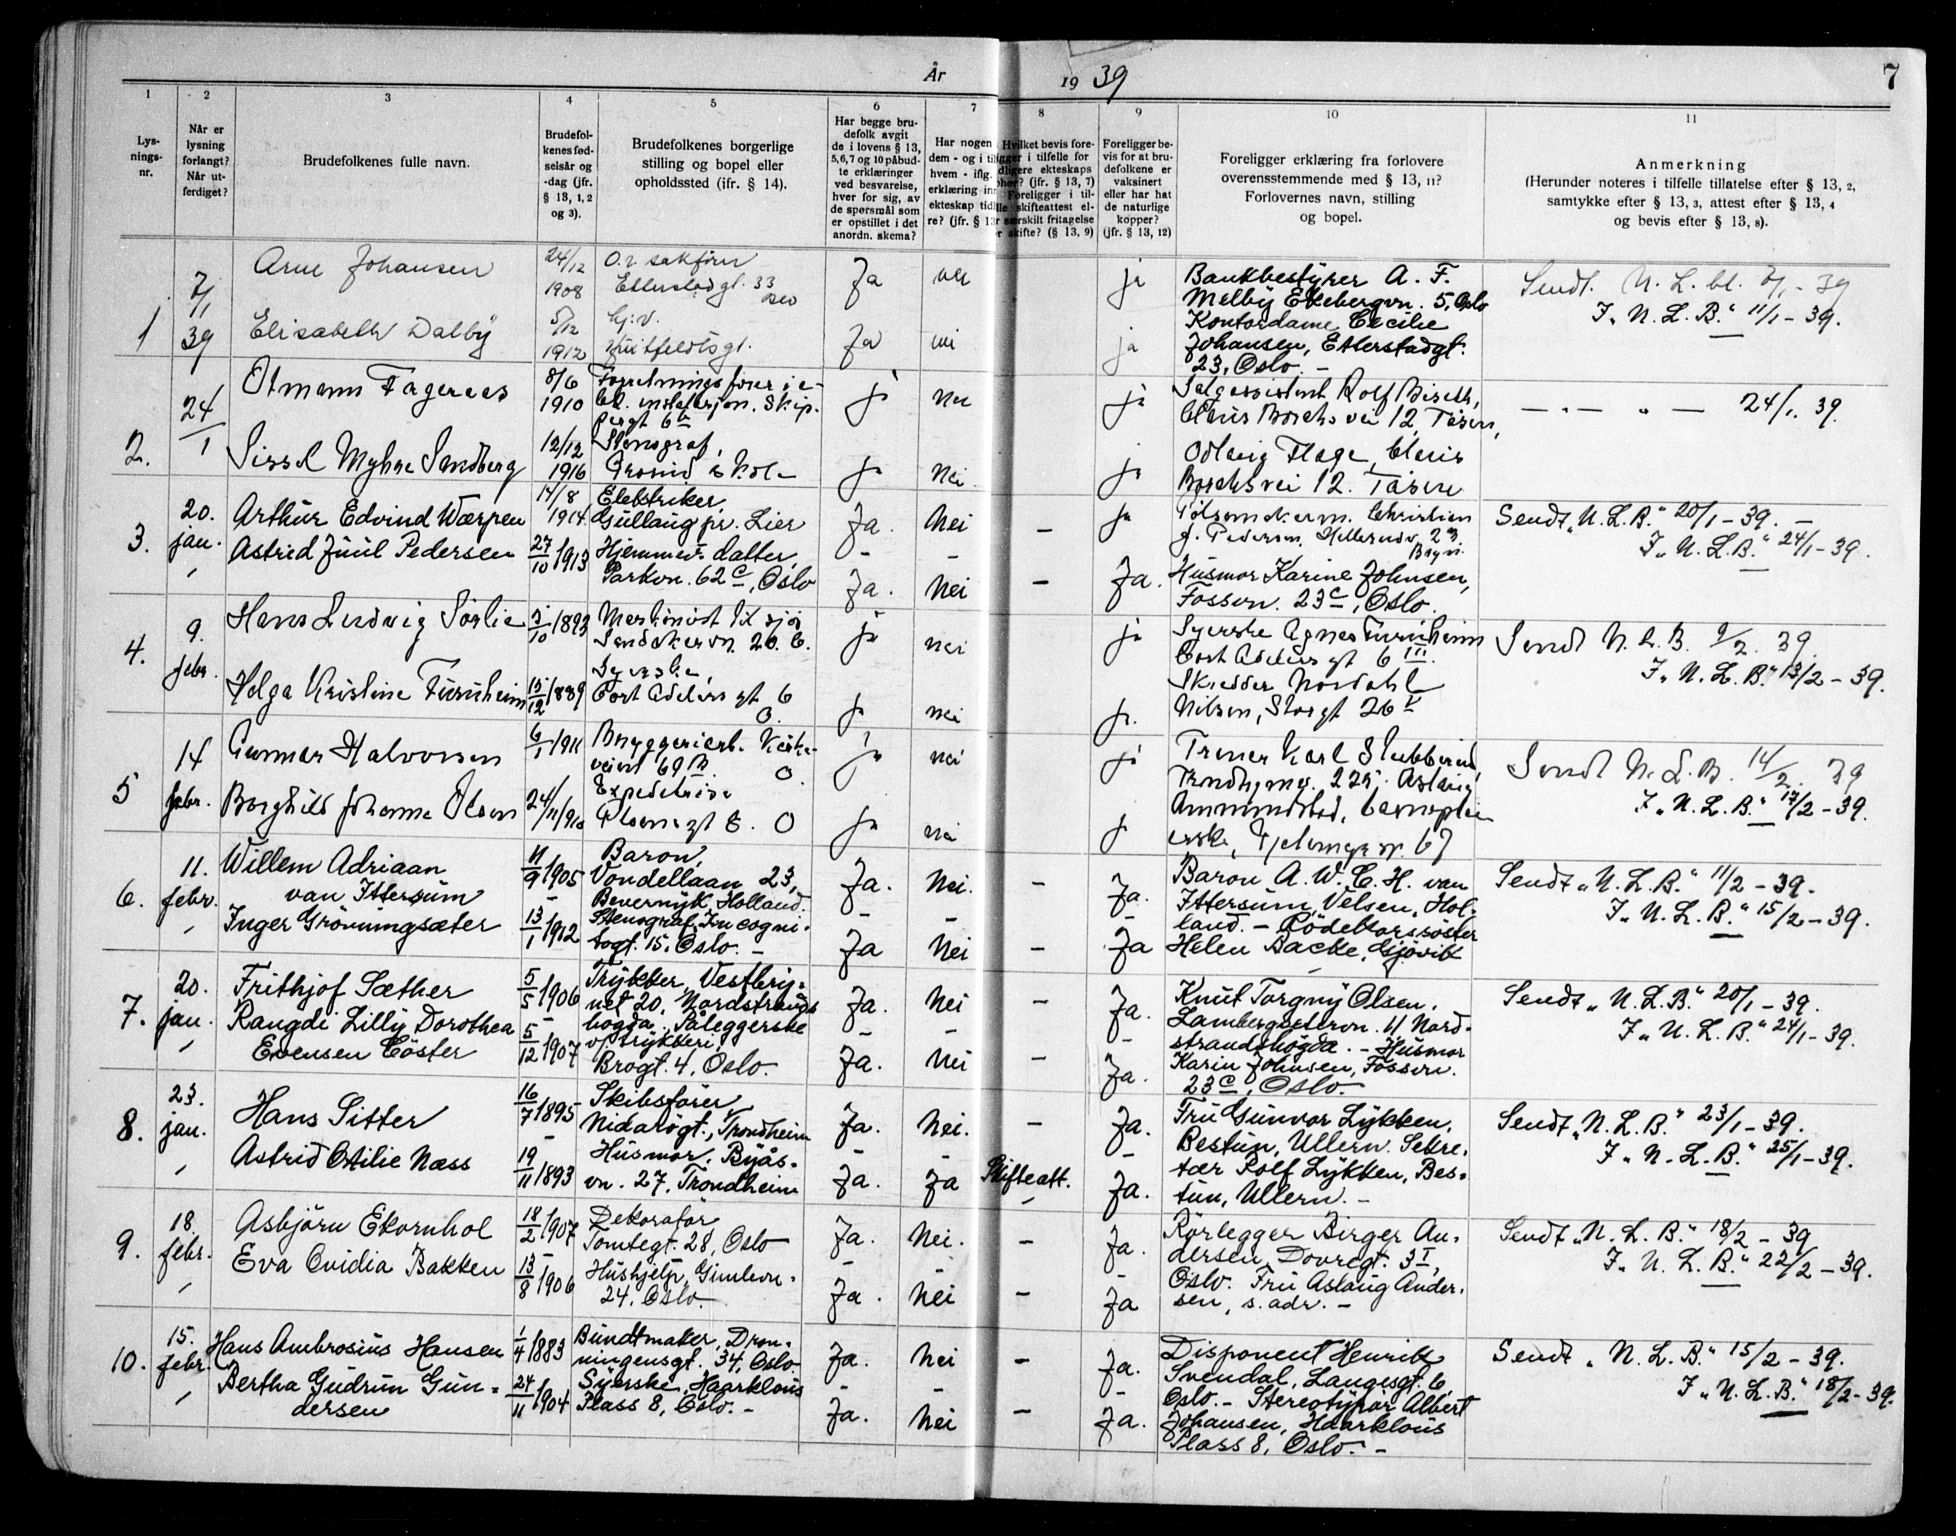 År 19 39
7
1 2 3 4 5 6 7 8 9 10 11
Lys-
nings-
nr.
Når er
lysning
forlangt?
Når ut-
ferdiget?
Brudefolkenes fulle navn.
Brudefol-
kenes fød-
selsår og
-dag (jfr.
§ 13, 1, 2
og 3).
Brudefolkenes borgerlige
stilling og bopel eller
opholdssted (ifr. § 14).
Har begge bru-
defolk avgit
de i lovens § 13,
5,6,7 og 10 påbud-
te erklæringer
ved besvarelse,
hver for sig, av
de spørsmål som
er opstillet i det
anordn. skema?
Har nogen
dem - og i ti
hvem - iflg.
erklæring in
ekteskap tid
re? (jfr. § 13
Hvilket bevis fore-
ligger i tilfelle for
ekteskaps
(jfr. § 13, 7)
Foreligger i til-
skifteattest el-
særskilt fritagelse
skifte? (§ 13, 9)
Foreligger be-
vis for at bru-
defolkene er
vaksinert
eller har hat
de naturlige
kopper?
(jfr. § 13, 12)
Foreligger erklæring fra forlovere
overensstemmende med § 13, 11?
Forlovernes navn, stilling
og bopel.
Anmerkning
(Herunder noteres i tilfelle tillatelse efter § 13, 2,
samtykke efter § 13, 3, attest efter § 13, 4
og bevis efter § 13, 8).
1
7/1
39
Arne Johansen
24/12
1908
O.r. sakfører
Etterstadgt. 33
Oslo
Ja
nei
ja
Elisabeth Dalby
5/12
1912
Huitfeldtsgt.
Ja
ja
Bankbestyrer A. F.
Melby Ekebergvn. 5, Oslo
Kontordame Cecilie
Johansen, Etterstadgt.
23, Oslo. -
Sendt. N. L. bl. 7/1 - 39
J. „N. L. B.“ 11/1 - 39.
2.
24/1
Otmann Fagernes
8/6
1910
ja
nei
ja
Sissel Myhre Sandberg
12/12
1916
Stenograf,
ja
nei.
ja
Salgsassistent Rolf
vei 12, Tåsen,
Oddveig Flage,
vei 12. Tåsen
— „ — „ — 24/1. 39.
3.
20.
jan.
Arthur Edvind Wærpen
14/8
1914.
Elektriker,
Gullaug pr. Lier
Ja
Nei
-
ja
Astrid Juul Pedersen
27/10 1913
Hjemmev. datter,
Parkvn. 62 c, Oslo
Ja.
Nei
-
Ja.
Christian
J. Pedersen, 23
Bryn.
Husmor Karine Johnsen,
Fossvn. 23 c, Oslo.
Sendt „N. L. B.“ 20/1 - 39. -
J. „N. L. B.“ 24/1 - 39.
4.
9.
febr.
Hans Ludvig Sörlie
5/10 1893
Maskinist
Sandakervn. 20. C.
ja
nei
ja
Helga Kristine Furuheim
15/12 1889
Syerske,
Cort Adelers gt 6
O.
ja
nei
ja.
Syerske Agnes Furuheim
Cort Adelers gt 6 III.
Skredder Nordahl
Nilsen, Storgt 26 V
Sendt N. L. B. 9/2. 39.
J. „N. L. B.“ 13/2 - 39.
5
14
febr.
Gunnar Halvorsen
6/1 1911
Bryggeriarb.
veien 69 B.
O.
ja
nei
ja
Borghild Johanne Olsen
24/11/910
Expeditrise
gt 8. O
ja
nei
ja
Trener Karl Stubberud,
Trondhjemsv. 225. Aslaug
Ammundstad,
67
Sendt N. L. B. 14/2. 39
J. „N. L. B.“ 17/2 - 39.
6.
11.
febr.
Willem Adriaan
van Ittersum
11/9 1905
Baron,
Vondellaan 23,
Bevernijk, Holland.
Ja.
Nei.
-
Ja.
Inger Grönningsæter
13/1 1912
Stenograf, Incogni-
togt. 15, Oslo. -
Ja
Nei
-
Ja
Baron A. W. C. H. van
Ittersum, Velsen, Hol-
land. - Rödekorssöster
Helen Backe, Gjövik
Sendt „N. L. B.“ 11/2 - 39.
J. „N. L. B.“ 15/2 - 39.
7.
20.
jan.
Frithjof Sæther
5/5 1906
Trykker, Vestbry-
net 20, Nordstrands
högda. Påleggerske
v/ trykkeri.
Brogt. 4, Oslo.
Ja.
Nei
-
Ja.
Rangdi Lilly Dorothea
Evensen Cöster
5/12 1907
Ja.
Nei
-
Ja.
Knut Torgny Olsen,
Lambergsetervn. 11 Nord-
strandshögda. - Husmor
Karin Johnsen, Fossvn.
23 c, Oslo.
Sendt „N. L. B.“ 20/1 - 39.
J. „N. L. B.“ 24/1 - 39.
8.
23.
jan.
Hans Sitter
16/7 1895
Skibsförer,
Nidarögt., Trondheim
Ja.
Nei.
-
Ja.
Astrid Otilie Næss
19/11 1893
Husmor, Byås-
vn. 27, Trondheim
Ja.
Ja
Skifteatt.
Ja.
Fru Gunvor Lykken,
Bestun, Ullern. Sekre-
tær Rolf Lykken, Bes-
tun, Ullern. -
Sendt „N. L. B.“ 23/1 - 39.
J. „N. L. B.“ 25/1 - 39.
9.
18.
febr.
Asbjörn Ekornhol
18/2 1907
Dekoratör,
Tomtegt. 28, Oslo
Ja.
Nei.
-
Ja.
Eva Ovidia Bakken
13/8 1906
Hushjelp, Gimlevn.
24, Oslo.
Ja.
Nei
-
Ja
Rörlegger Birger An-
dersen, Dovregt. 3 I,
Oslo. Fru Aslaug Ander-
sen, s. adr. -
Sendt „N. L. B.“ 18/2 - 39
J. „N. L. B.“ 22/2 - 39.
10.
15.
febr.
Hans Ambrosius Hansen
1/4 1883
Bundtmaker, Dron-
ningensgt. 34, Oslo
Ja.
Nei
-
Ja.
Bertha Gudrun Gun-
dersen
24/11 1904
Syerske, Haarklous
Plass 8, Oslo. -
Ja.
Nei
-
Ja.
Disponent Henrik
Svendal, Langesgt. 6,
Oslo. - Stereotypör Albert
Johansen, Haarklous
Plass 8, Oslo. -
Sendt „N. L. B.“ 15/2 - 39.
J. „N. L. B.“ 18/2 - 39.